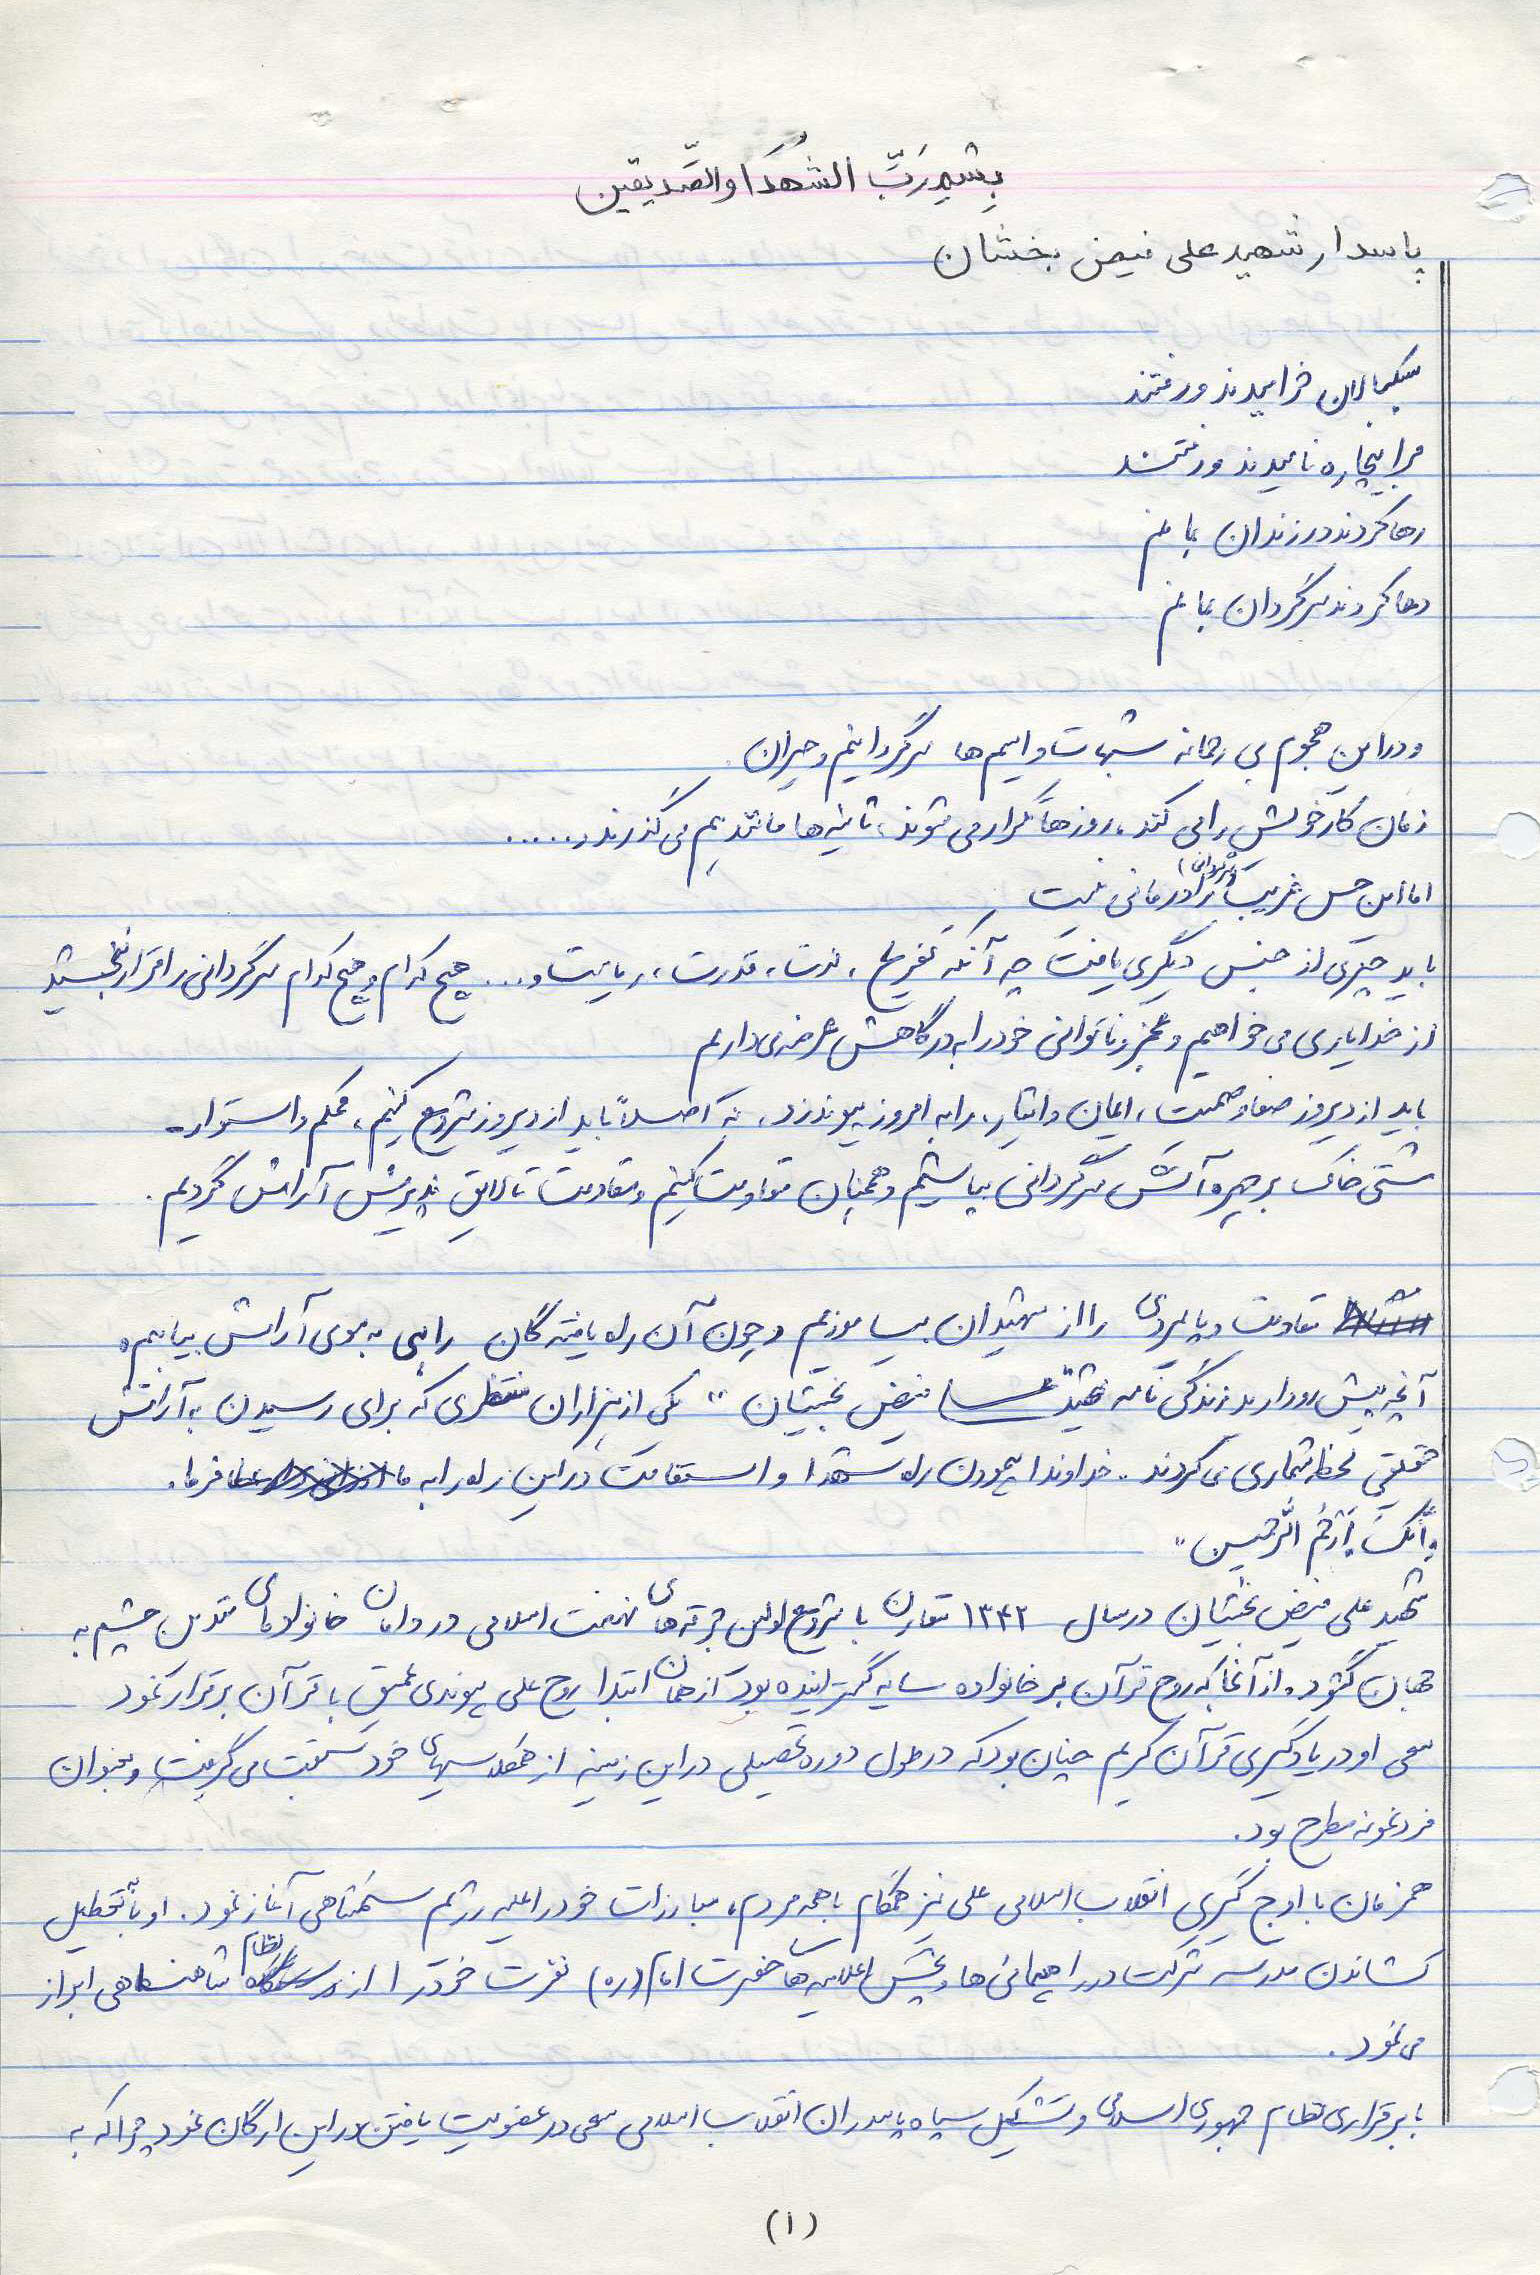 بِسْمِ رَبِّ الشُهَدَا والصِّدیقین
پاسدار شهید علی فیض بخشان
سبکباران خرامیدند و رفتند
مرا بیچاره نامیدند و رفتند
رها کردند در زندان بمانم
رها کردند سرگردان بمانم
و در این هجوم بی رحمانه شبهات و ایسم ها سرگردانیم و حیران
زمان کار خویش را می کند، روزها تکرار می شوند، ثانیه ها مانند هم می گذرند و.....
اما این حس غریب را درمانی نیست
باید چیزی از جنس دیگری یافت چه آنکه تفریح، لذت، قدرت، ریاست و... هیچ کدام و هیچ کدام سرگردانی را قرار نبخشید
از خدا یاری می خواهیم و عجز و ناتوانی خود را به درگاهش عرضه می داریم
باید از دیروز صفا و صمیمیت، ایمان و ایثار، را به امروز پیوند زد، نه اصلاً باید از دیروز شروع کنیم، محکم و استوار-
مشتی خاک بر چهره آتش سرگردانی بپاشیم و همچنان مقاومت کنیم و مقاومت تا لایق پذیرش آرامش گردیم.
مقاومت و پایمردی را از شهیدان بیاموزیم و چون آن راه یافتگان راهی به سوی آرامش بیابیم.
آنچه پیش رو دارید زندگی نامه شهید علی فیض بخشیان " یکی از هزاران منتظری که برای رسیدن به آرامش
حقیقی لحظه شماری می کردند. خداوندا پیمودن راه شهدا و استقامت در این راه را به ما عطا فرما.
وَاَنکَ اَرْحَمُ الرَّحمین"
شهید علی فیض بخشیان در سال ۱۳۴۲ متقارن با شروع اولین جرقه های نهضت اسلامی در دامان خانواده ای متدین چشم به
جهان گشود. از آنجا که روح قرآن بر خانواده سایه گسترانیده بود از همان ابتدا روح علی پیوندی عمیق با قرآن برقرار نمود
سعی او در یادگیری قرآن کریم چنان بود که در طول دوره تحصیلی در این زمینه از همکلاسیهای خود سبقت می گرفت و بعنوان
فرد نمونه مطرح بود.
همزمان با اوج گیری انقلاب اسلامی علی نیز همگام با همه مردم، مبارزات خود را علیه رژیم ستمشاهی آغاز نمود. او با تعطیل
کشاندن مدرسه شرکت در راهپیمائی ها و پخش اعلامیه های حضرت امام (ره) نفرت خود را از نظام شاهنشاهی ابراز
می نمود.
با برقراری نظام جمهوری اسلامی و تشکیل سپاه پاسداران انقلاب اسلامی سعی در عضویت یافتن در این ارگان نمود چرا که به
(۱)